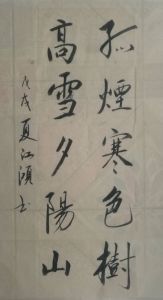 孤煙寒色樹
高雪夕陽山
戊戌夏江湏书